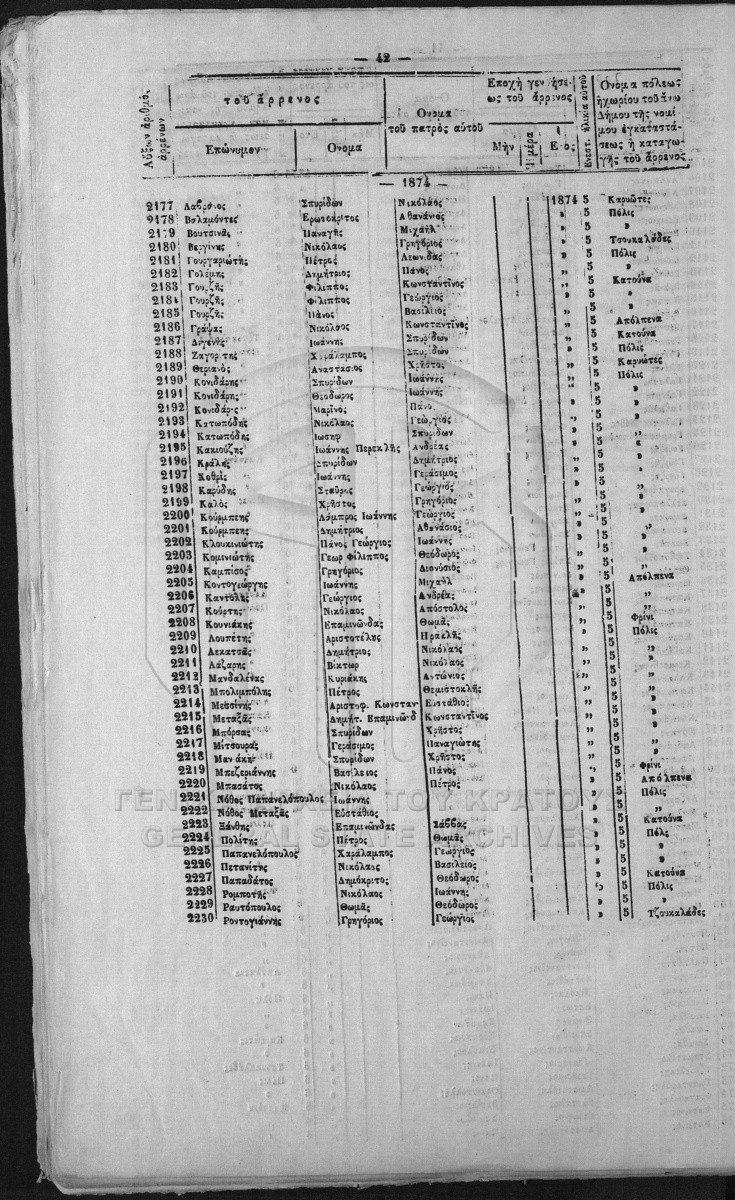 — 42 —
Αὔξων ἀριθμὸς ἀρρένων
τοῦ ἄρρενος
Ἐπώνυμον
Ὄνομα
Ὄνομα τοῦ πατρὸς αὐτοῦ
Ἐποχὴ γεννήσεως τοῦ ἄρρενος
Μὴν
Ἡμέρα
Ἔτος
Ἐνεστ. ἡλικία αὐτοῦ
Ὄνομα πόλεως
ἢ χωρίου τοῦ ἄνω
Δήμου τῆς νομί
μου ἐγκαταστά
σεως ἢ καταγω
γῆς τοῦ ἄρρενος
— 1874 —
2177 Σπυρίδων Νικόλαος 1874 5 Καρυῶτες
2178 Βαλαμόντες Ἐρωτόκριτος Ἀθανάσιος » 5 Πόλις
2179 Βουτσινᾶς Παναγῆς Μιχαήλ » 5 »
2180 Βεργίνης Νικόλαος Γρηγόριος » 5 Τσουκαλάδες
2181 Γουργαριώτης Πέτρος Λεωνίδας » 5 Πόλις
2182 Γολέμης Δημήτριος Πάνος » 5 »
2183 Γουρζῆς Φίλιππος Κωνσταντῖνος » 5 Κατοῦνα
2184 Γουρζῆς Φίλιππος Γεώργιος » 5 »
2185 Γουρζῆς Πάνος Βασίλειος » 5 »
2186 Γράψας Νικόλαος Κωνσταντῖνος » 5 Ἀπόλπενα
2187 Διγενῆς Ἰωάννης Σπυρίδων » 5 Κατοῦνα
2188 Ζαγορίτης Χαράλαμπος Σπυρίδων » 5 Πόλις
2189 Θεριανὸς Ἀναστάσιος Χρῆστος » 5 Καρυῶτες
2190 Κονιδάρης Σπυρίδων Ἰωάννης » 5 Πόλις
2191 Κονιδάρης Θεόδωρος Ἰωάννης » 5 »
2192 Κονιδάρης Μαρῖνος Πάνο » 5 »
2193 Κατωπόδης Νικόλαος Γεώργιος » 5 »
2194 Κατωπόδης Ἰωσὴφ Σπυρίδων » 5 »
2195 Κακιούζης Ἰωάννης Περεκλῆς Ἀνδρέας » 5 »
2196 Κράλης Σπυρίδων Δημήτριος » 5 »
2197 Κοθρὶς Ἰωάννης Γεράσιμος » 5 »
2198 Καρύδης Σταῦρος Γεώργιος » 5 »
2199 Καλὸς Χρῆστος Γρηγόριος » 5 »
2200 Κούρμπεης Λάμπρος Ἰωάννης Γεώργιος » 5 »
2201 Κούρμπεης Δημήτριος Ἀθανάσιος » 5 »
2202 Κλουκινιώτης Πάνος Γεώργιος Ἰωάννης » 5 »
2203 Κομινιώτης Γεωρ Φίλιππος Θεόδωρος » 5 »
2204 Καμπίσος Γρηγόριος Διονύσιος » 5 »
2205 Κοντογιώργης Ἰωάννης Μιχαήλ » 5 Ἀπόλπενα
2206 Καντόλης Γεώργιος Ἀνδρέας » 5 »
2207 Κούρτης Νικόλαος Ἀπόστολος » 5 »
2208 Κουνιάκης Ἐπαμινῶνδας Θωμᾶς » 5 Φρίνι
2209 Λουπέτης Ἀριστοτέλης Ἡρακλῆς » 5 Πόλις
2210 Λεκατσᾶς Δημήτριος Νικόλαος » 5 »
2211 Λάζαρης Βίκτωρ Νικόλαος » 5 »
2212 Μανδαλένας Κυριάκης Ἀντώνιος » 5 »
2213 Μπολιμπόλης Πέτρος Θεμιστοκλῆς » 5 »
2214 Μεσσίνης Ἀριστοφ. Κωνσταν- Εὐστάθιος » 5 »
2215 Μεταξᾶς Δημήτ. Ἐπαμινῶνδ Κωνσταντῖνος » 5 »
2216 Μπόρσας Σπυρίδων Χρῆστος » 5 »
2217 Μίτσουρας Γεράσιμος Παναγιώτης » 5 »
2218 Μανάκης Σπυρίδων Χρῆστος » 5 »
2219 Μπεζεριάννης Βασίλειος Πάνος » 5 Φρίνι
2220 Μπασάτος Νικόλαος Πέτρος » 5 Ἀπόλπενα
2221 Νόθος Παπανελόπουλος Ἰωάννης » 5 Πόλις
2222 Νόθος Μεταξᾶς Εὐστάθιος » 5 »
2223 Ξάνθης Ἐπαμινώνδας Σάββας » 5 Κατοῦνα
2224 Πολίτης Πέτρος Θωμᾶς » 5 Πόλις
2225 Παπανελόπουλος Χαράλαμπος Γεώργιος » 5 »
2226 Πετανίτης Νικόλαος Βασίλειος » 5 »
2227 Παπαδᾶτος Δημόκριτος Θεόδωρος » 5 Κατοῦνα
2228 Ρομποτῆς Νικόλαος Ἰωάννης » 5 Πόλις
2229 Ραυτόπουλος Θωμᾶς Θεόδωρος » 5 »
2230 Ροντογιάννης Γρηγόριος Γεώργιος » 5 Τζουκαλάδες
ΓΕΝΙΚΑ ΑΡΧΕΙΑ ΤΟΥ ΚΡΑΤΟΥΣ
GENERAL STATE ARCHIVES